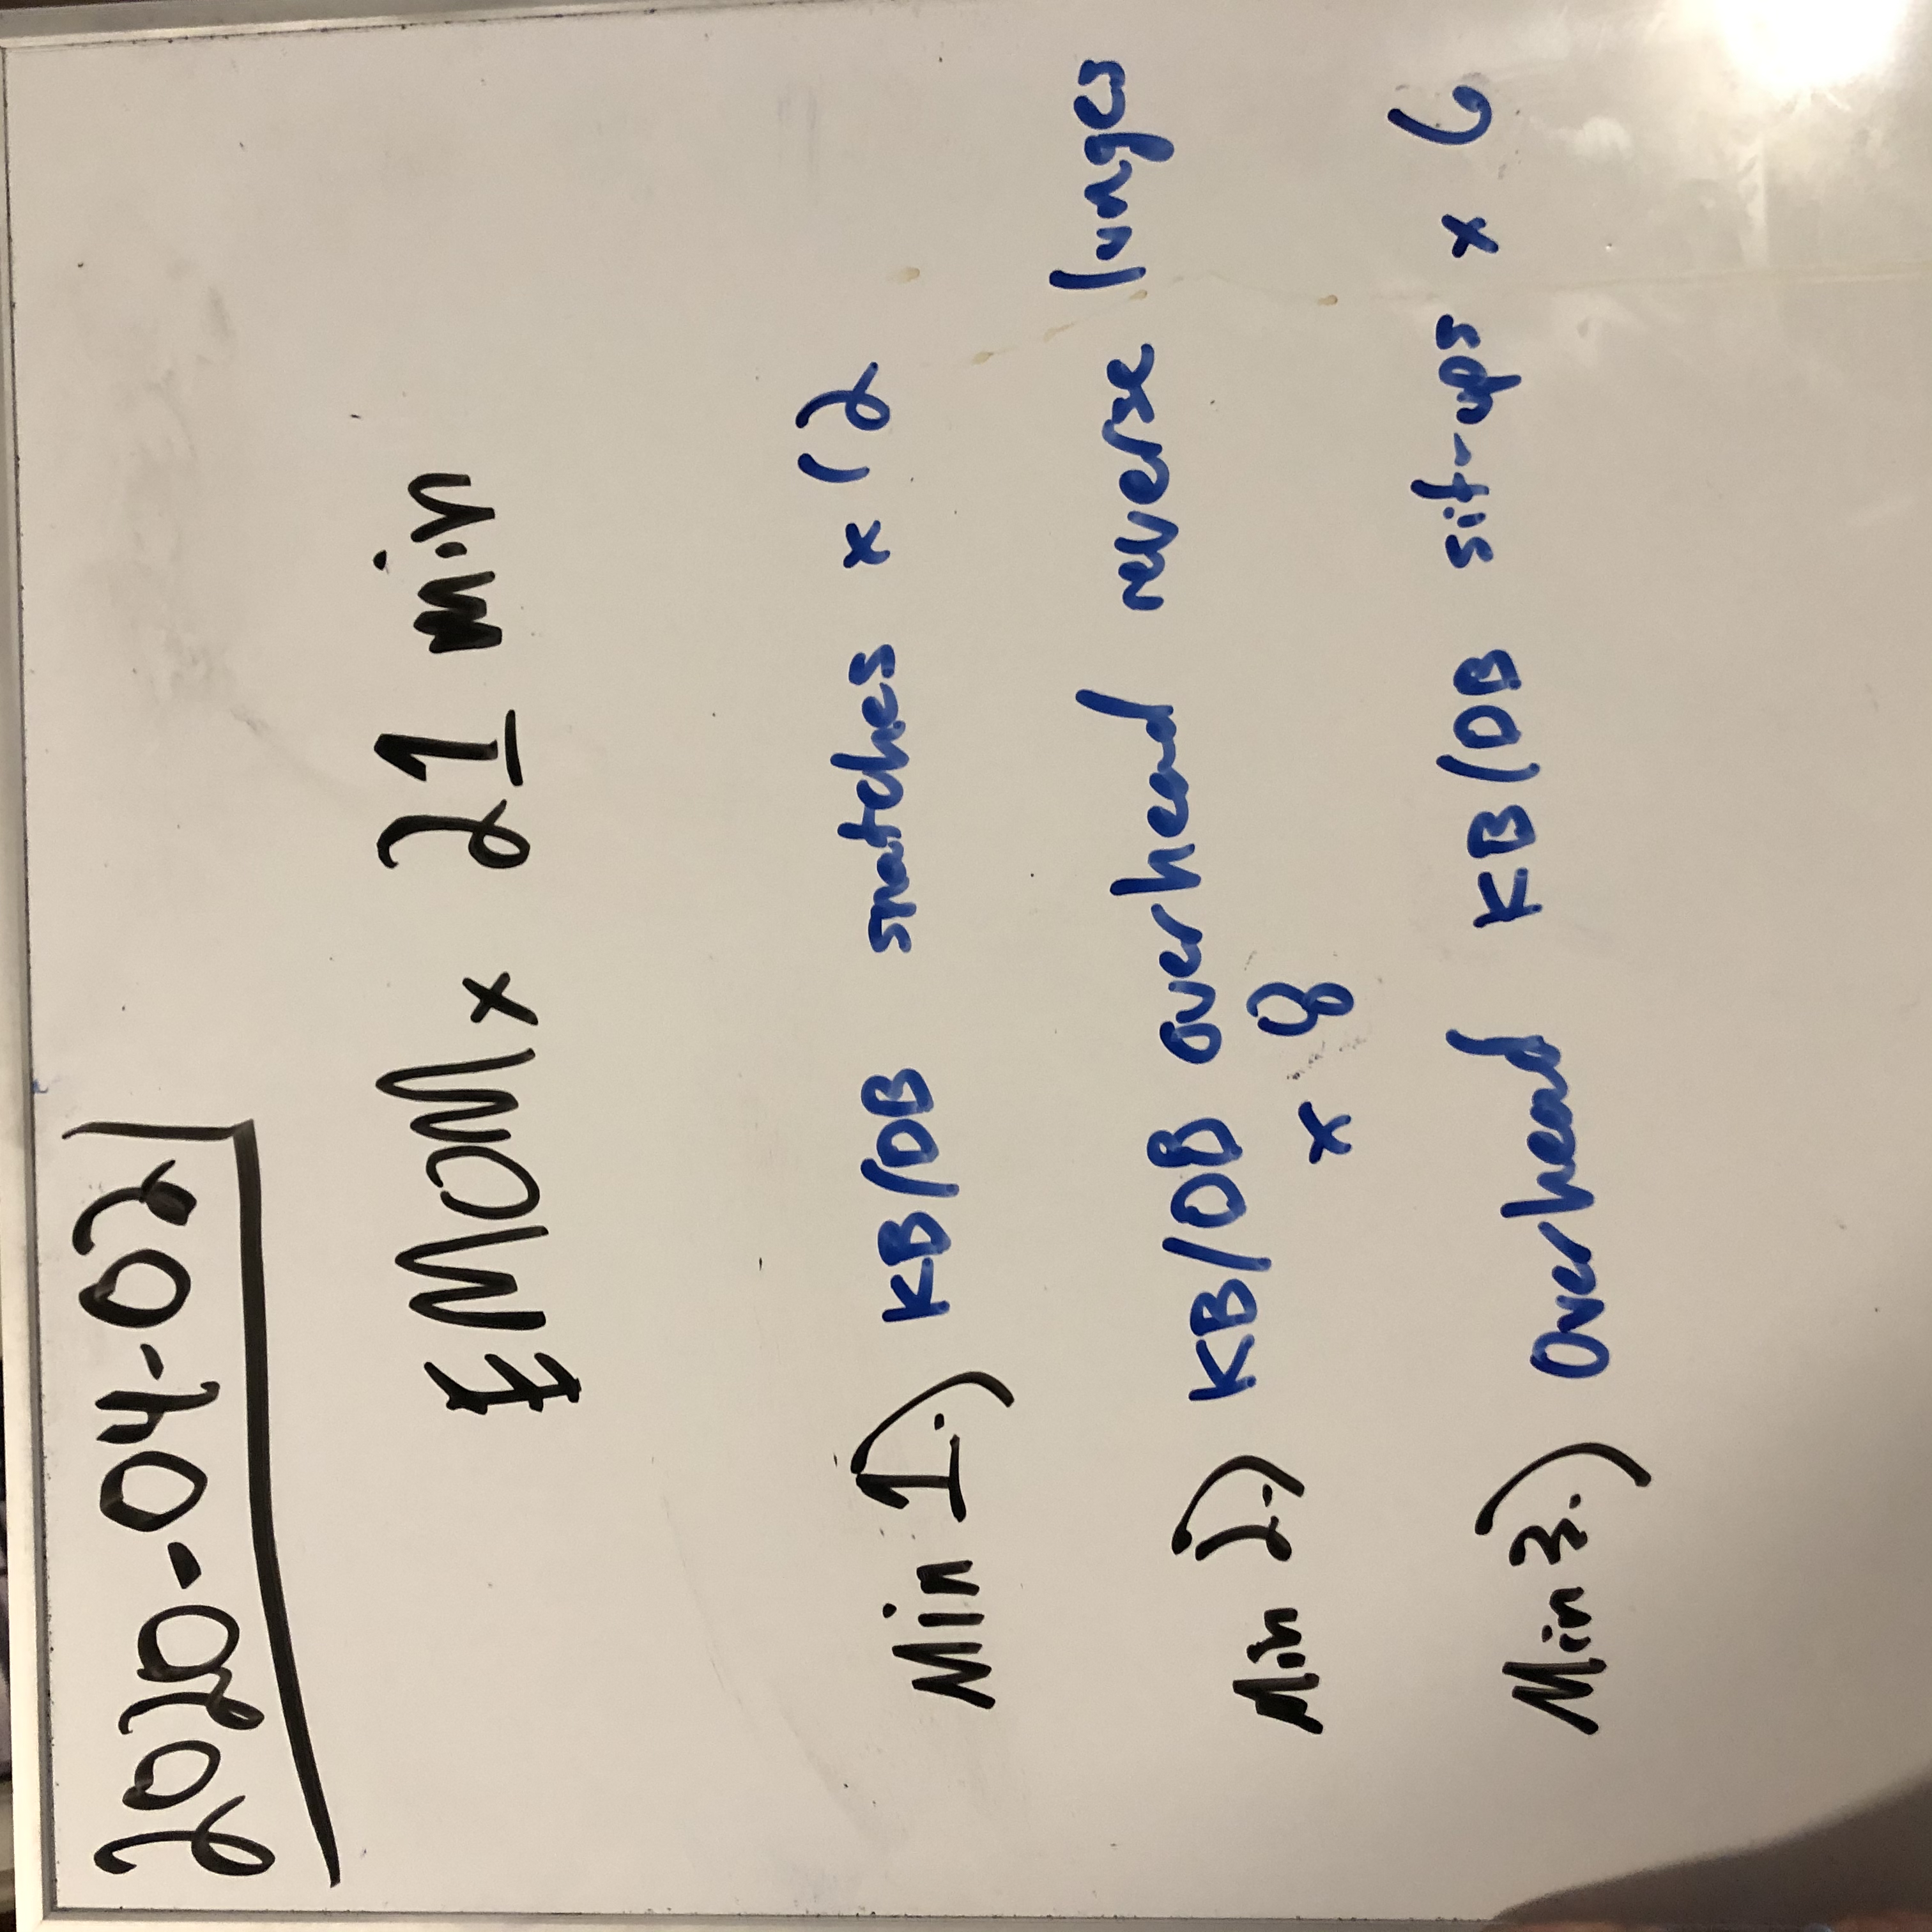 2020-04-02
EMOM x 21 min
Min 1.) KB/DB snatches x 12
Min 2.) KB/DB overhead reverse lunges
x 8
Min 3.) Overhead KB/DB sit-ups x 6